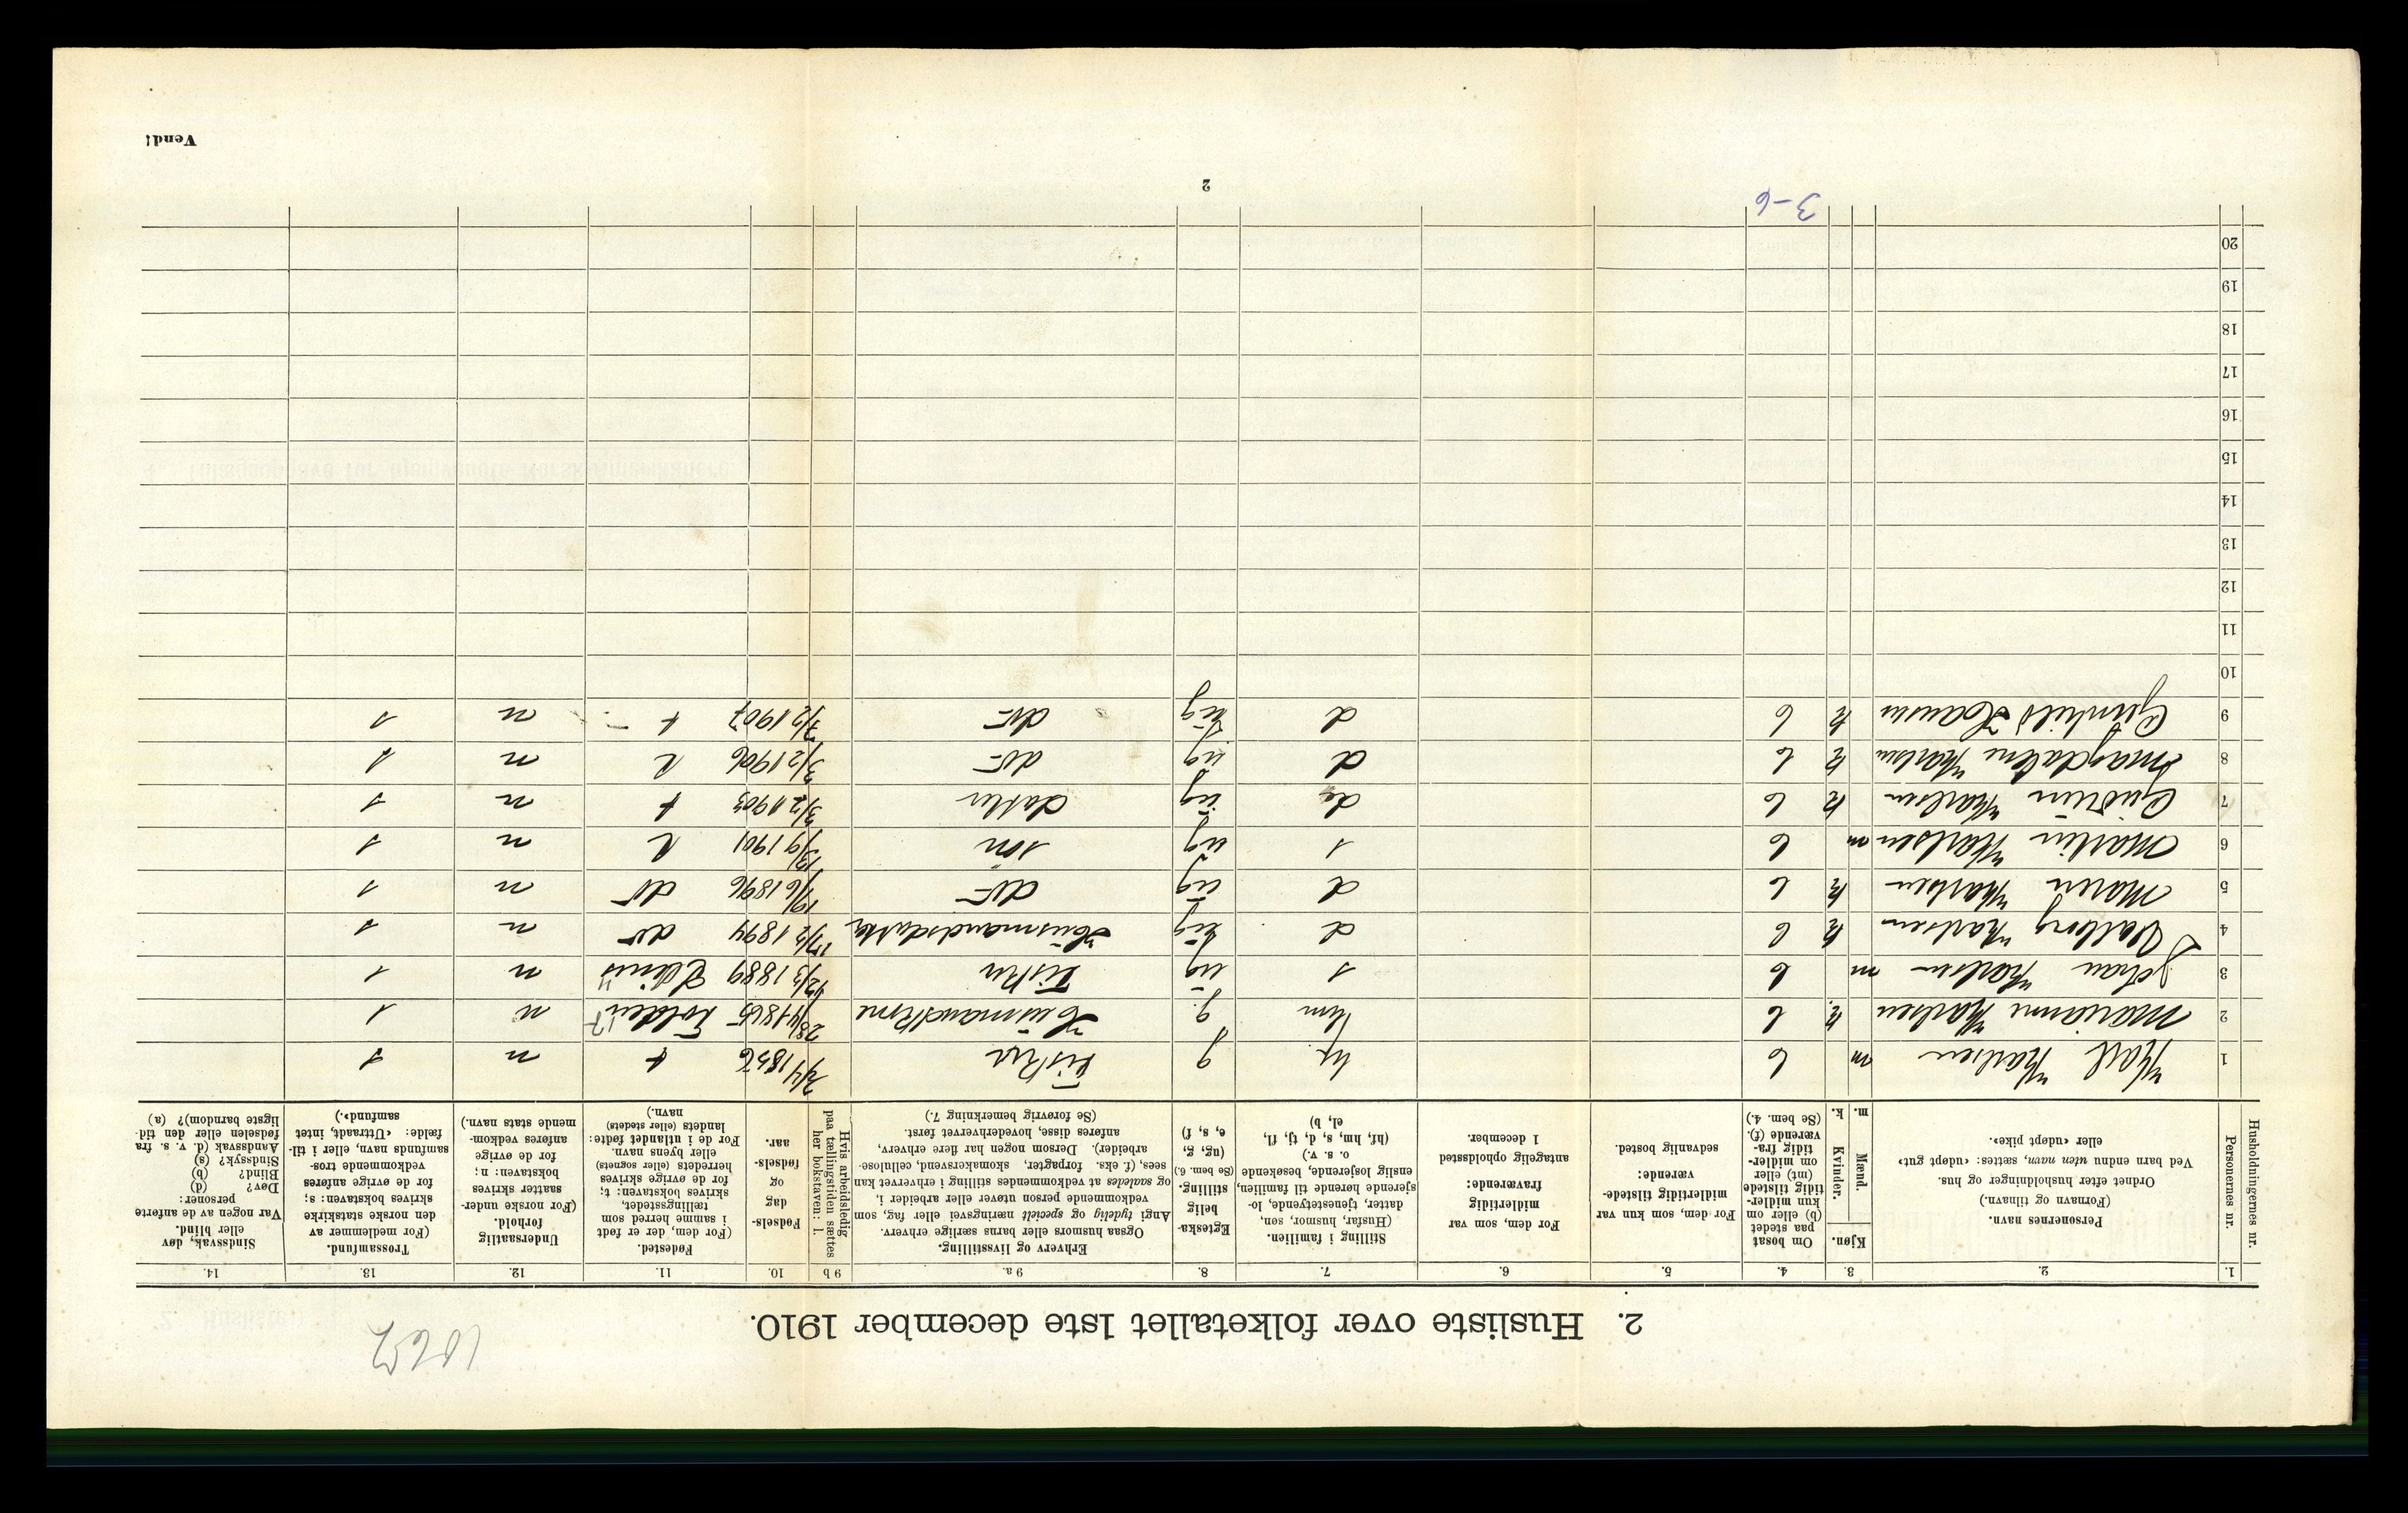 1067
2. Husliste over folketallet 1ste december 1910.
1. 2. 3. 4. 5. 6. 7. 8. 9 a. 9 b 10. 11. 12. 13. 14.
Husholdningernes nr.
Personernes nr.
Personernes navn.
(Fornavn og tilnavn.)
Ordnet efter husholdninger og hus.
Ved barn endnu uten navn, sættes: «udøpt gut»
eller «udøpt pike».
Kjøn.
Mænd.
Kvinder.
m. k.
Om bosat
paa stedet
(b) eller om
kun midler-
tidig tilstede
(mt) eller
om midler-
tidig fra-
værende (f).
(Se bem. 4.)
For dem, som kun var
midlertidig tilstede-
værende:
sedvanlig bosted.
For dem, som var
midlertidig
fraværende:
antagelig opholdssted
1 december.
Stilling i familien.
(Husfar, husmor, søn,
datter, tjenestetyende, lo-
sjerende hørende til familien,
enslig losjerende, besøkende
o. s. v.)
(hf, hm, s, d, tj, fl,
el, b)
Egteska-
belig
stilling.
(Se bem. 6.)
(ug, g,
e, s, f)
Erhverv og livsstilling.
Ogsaa husmors eller barns særlige erhverv.
Angi tydelig og specielt næringsvei eller fag, som
vedkommende person utøver eller arbeider i,
og saaledes at vedkommendes stilling i erhvervet kan
sees, (f. eks. forpagter, skomakersvend, cellulose-
arbeider). Dersom nogen har flere erhverv,
anføres disse, hovederhvervet først.
(Se forøvrig bemerkning 7.)
Hvis arbeidsledig
paa tællingstiden sættes
her bokstaven: l.
Fødsels-
dag
og
fødsels-
aar.
Fødested.
(For dem, der er født
i samme herred som
tællingsstedet,
skrives bokstaven: t;
for de øvrige skrives
herredets (eller sognets)
eller byens navn.
For de i utlandet fødte:
landets (eller stedets)
navn.)
Undersaatlig
forhold.
(For norske under-
saatter skrives
bokstaven: n;
for de øvrige
anføres vedkom-
mende stats navn.)
Trossamfund.
(For medlemmer av
den norske statskirke
skrives bokstaven: s;
for de øvrige anføres
vedkommende tros-
samfunds navn, eller i til-
fælde: «Uttraadt, intet
samfund».)
Sindssvak, døv
eller blind.
Var nogen av de anførte
personer:
Døv? (d)
Blind? (b)
Sindssyk? (s)
Aandssvak (d. v. s. fra
fødselen eller den tid-
ligste barndom)? (a)
1 Karl Karlsen m b hf. g Fisker 7/4 1856 t n s
2 Marianne Karlsen k. b hm g. Husmandskone 28/4 1865 Folden 17 n s
3 Johan Karlsen m b s ug Fisker 1889 n s
4 Valborg Karlsen k b d ug Husmandsdatter 17/2 1894 do n s
5 Maren Karlsen k b d ug do 19/6 1896 do n s
6 Martin Karlsen m b s ug søn 13/9 1901 t n s
7 Gudrun Karlsen k b d ug datter 3/2 1903 t n s
8 Magdalene Karlsen k b d ug do 3/2 1906 t n s
9 Gunhild Hansen k b d ug do 7/2 1907 t n s
10
11
12
13
14
15
16
17
18
19
20
3-6
2
Vend!